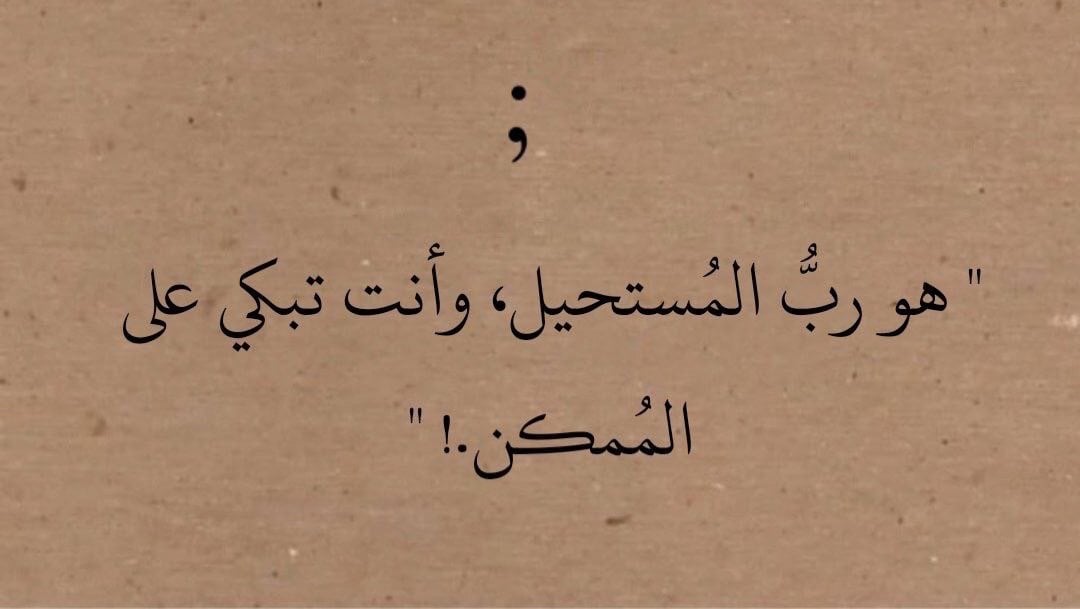 ;
" هو ربُّ المُستحيل، وأنت تبكي على
المُمكن.! "